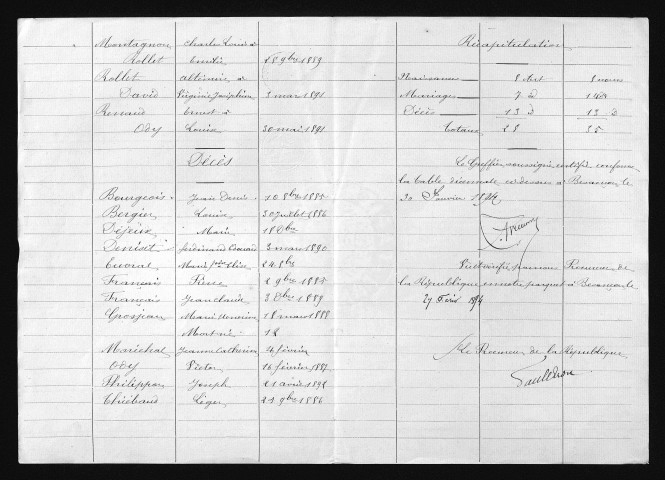 Montagnon Charles Louis &
Rollet Emilie 18 9bre 1889
Rollet &
David Virginie Joséphine 3 mai 1891
Renaud Ernest &
Ody Louise 30 mai 1891
Décès
Bourgeois Jean Denis
Bergier Louise 30 juillet 1886
Marie
Deniset Ferdinand 3 mars 1890
Cuorat Marie
Francais
Francais Jean Claude 1889
Grosjean Marie 18 mars 1888
Mort né 12
Maréchal Jeanne Catherine 4 février
Ody Victor 16 février 1887
Philippon Joseph 21 avril
Thiébaud Léger 21 9bre 1886
Récapitulation
Naissances 8 Actes 8 noms
Mariages 7 d 14 d
Décès 13 d 13 d
Totaux 28 35
Le Greffier soussigné certifie conforme
la table décennale ci-dessus à Besançon le
30 Janvier 1894
Vu et vérifié par nous Procureur de
la République en notre parquet à Besançon le
27 Févr. 1894
Le Procureur de la République,